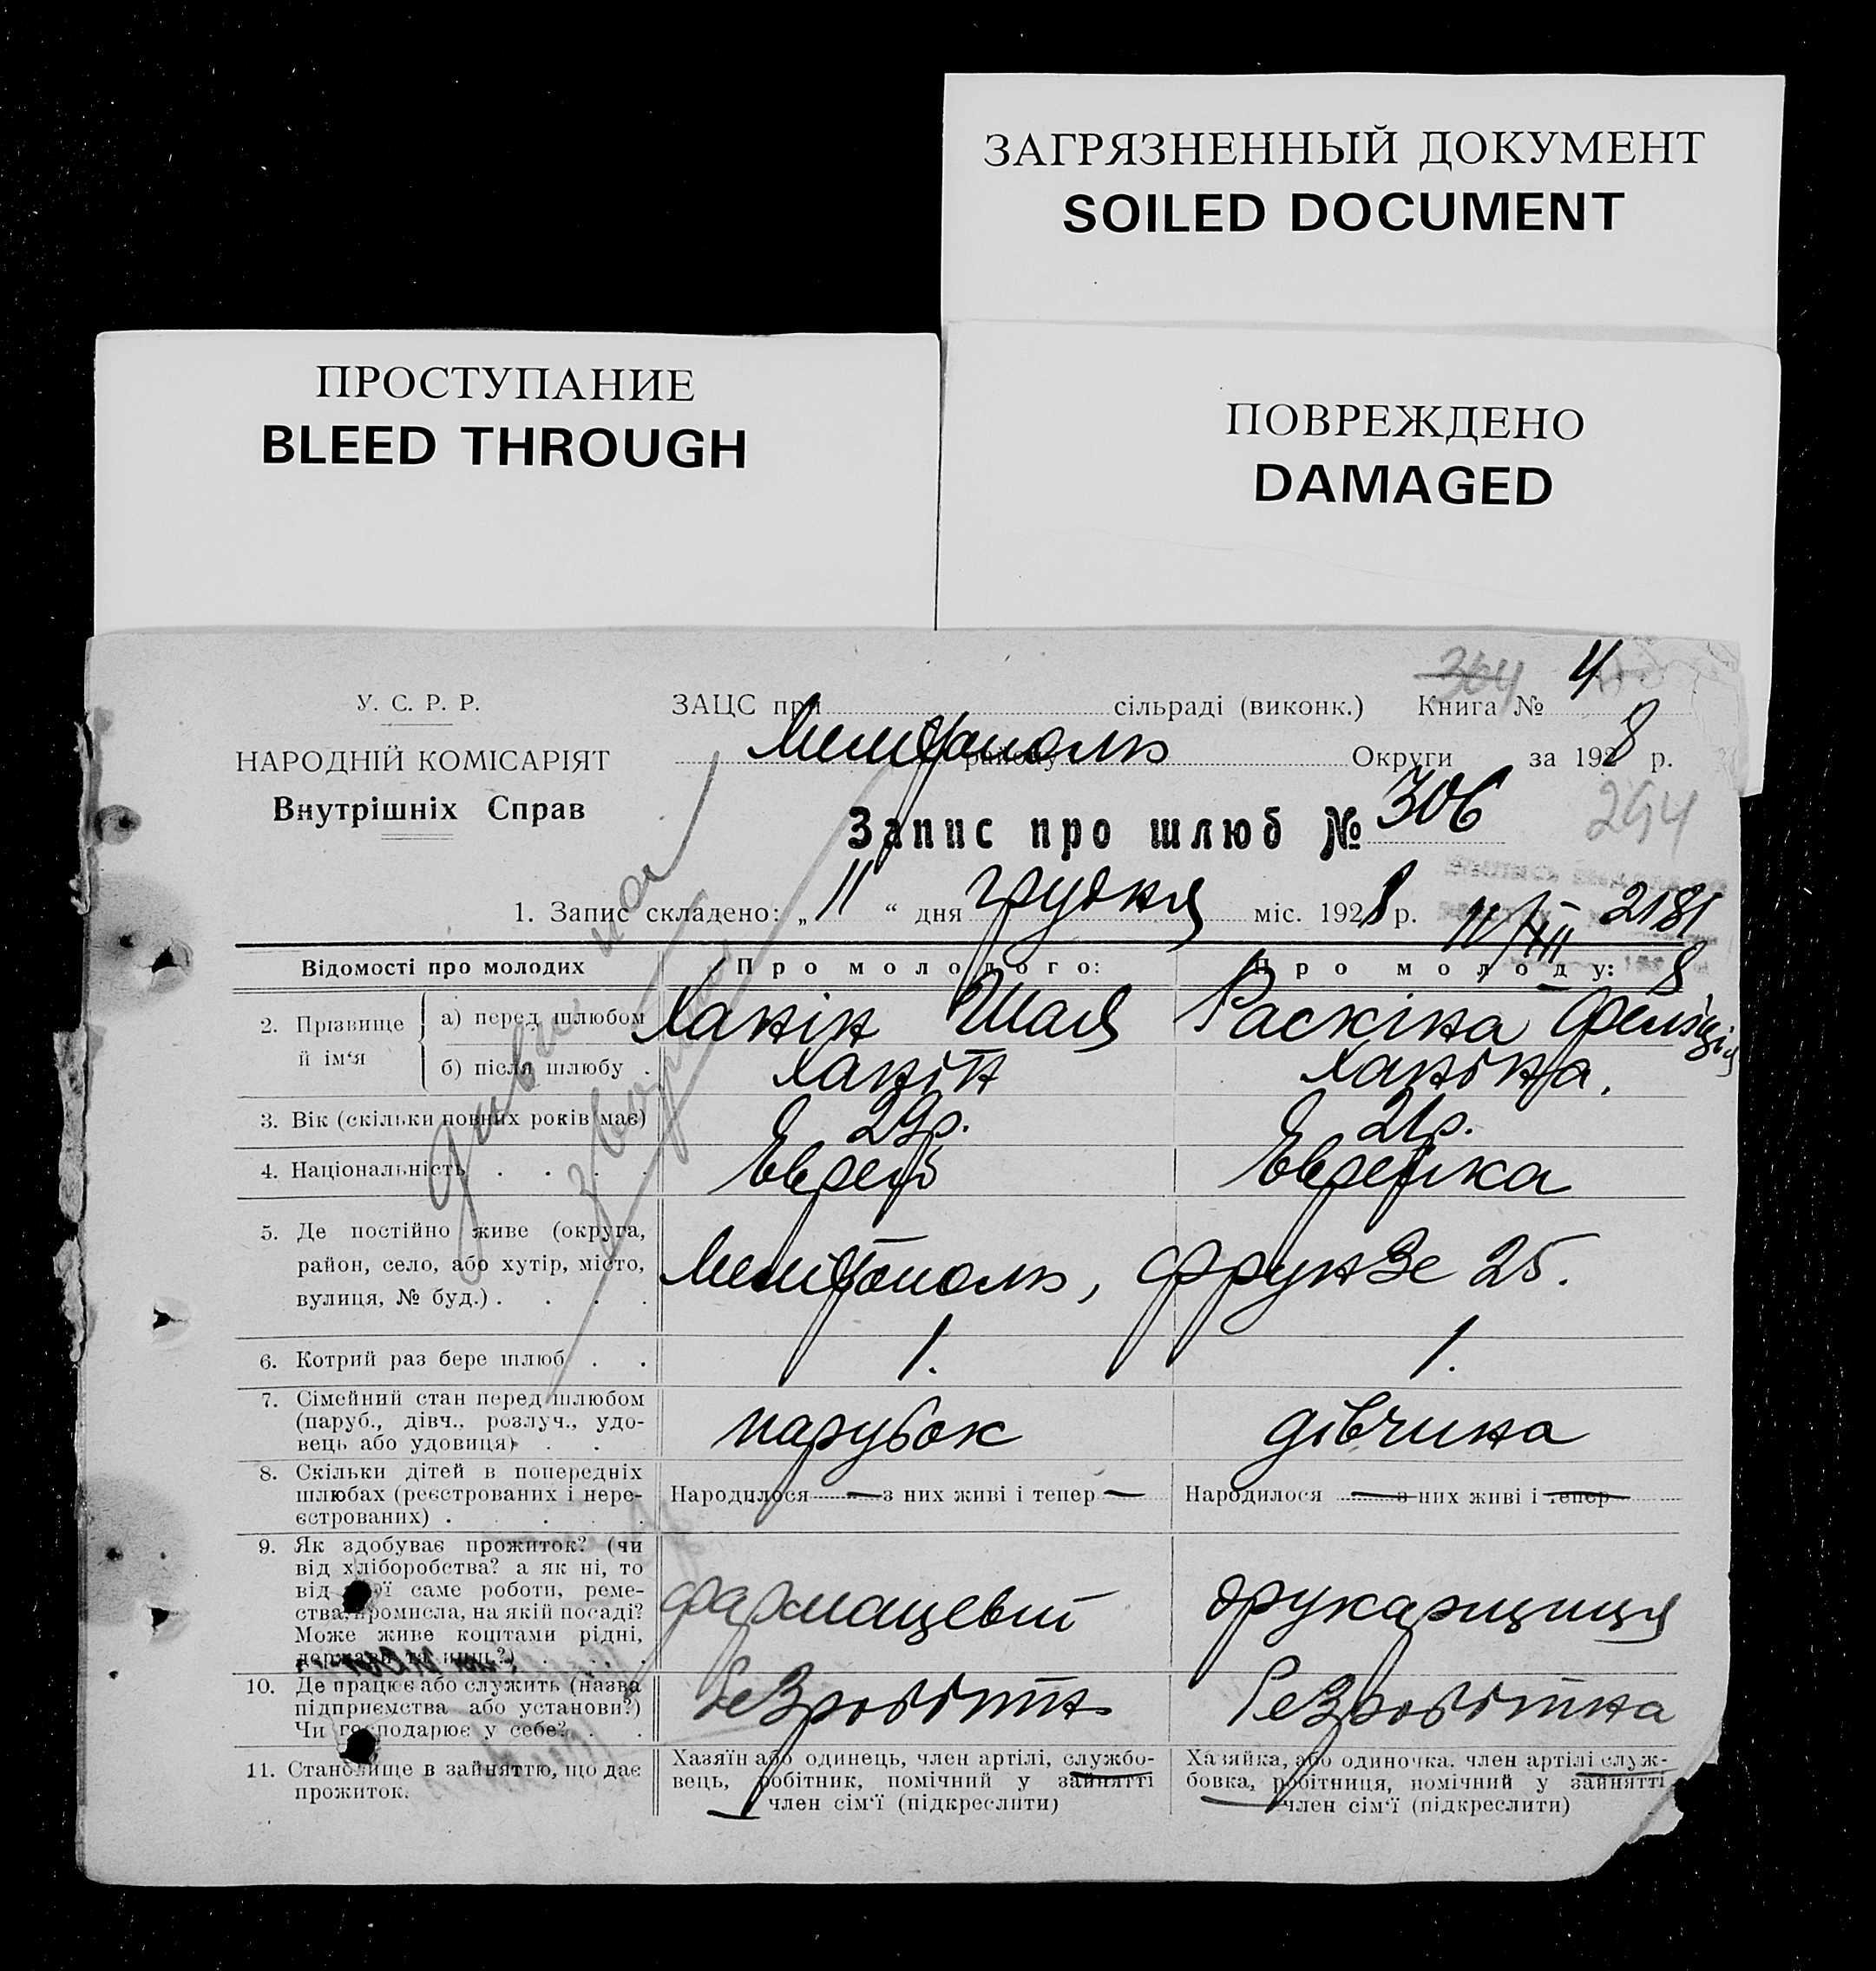 ЗАГРЯЗНЕННЫЙ ДОКУМЕНТ
SOILED DOCUMENT
ПРОСТУПАНИЕ
BLEED THROUGH
ПОВРЕЖДЕНО
DAMAGED
304 4
У. С. Р. Р. ЗАЦС при сільраді (виконк.) Книга №
НАРОДНІЙ КОМІСАРІЯТ Мелітополь району Округи за 1928 р.
Внутрішніх Справ
Запис про шлюб № 306 294
1. Запис складено: „11“ дня грудня міс. 1928 р. 11/XII 2181
8
Відомості про молодих Про молодого: Про молоду:
2. Прізвище й ім‘я а) перед шлюбом Ханін Шая Раскіна Феліція
б) після шлюбу . Ханін Ханіна.
3. Вік (скільки повних років має) 29р. 21р.
4. Національність . . . . Еврей Еврейка
5. Де постійно живе (округа,
район, село, або хутір, місто,
вулиця, № буд.) . . . . Мелітополь, Фрунзе 25.
6. Котрий раз бере шлюб . . 1. 1.
7. Сімейний стан перед шлюбом
(паруб., дівч., розлуч., удо-
вець або удовиця) . . парубок дівчина
8. Скільки дітей в попередніх
шлюбах (реєстрованих і нере- Народилося — з них живі і тепер — Народилося — з них живі і тепер —
єстрованих) . . . . .
9. Як здобуває прожиток? (чи
від хліборобства? а як ні, то
від якої саме роботи, реме-
ства, промисла, на якій посаді? фармацевт друкарщиця
Може живе коштами рідні,
держави та инш.?) . . .
10. Де працює або служить (назва
підприємства або установи?) безробітн безробітна
Чи господарює у себе? . .
11. Становище в зайняттю, що дає
прожиток.
Хазяїн або одинець, член артілі, службо-
вець, робітник, помічний у зайнятті
член сім‘ї (підкреслити)
Хазяйка, або одиночка. член артілі служ-
бовка, робітниця, помічний у зайнятті
член сім‘ї (підкреслити)